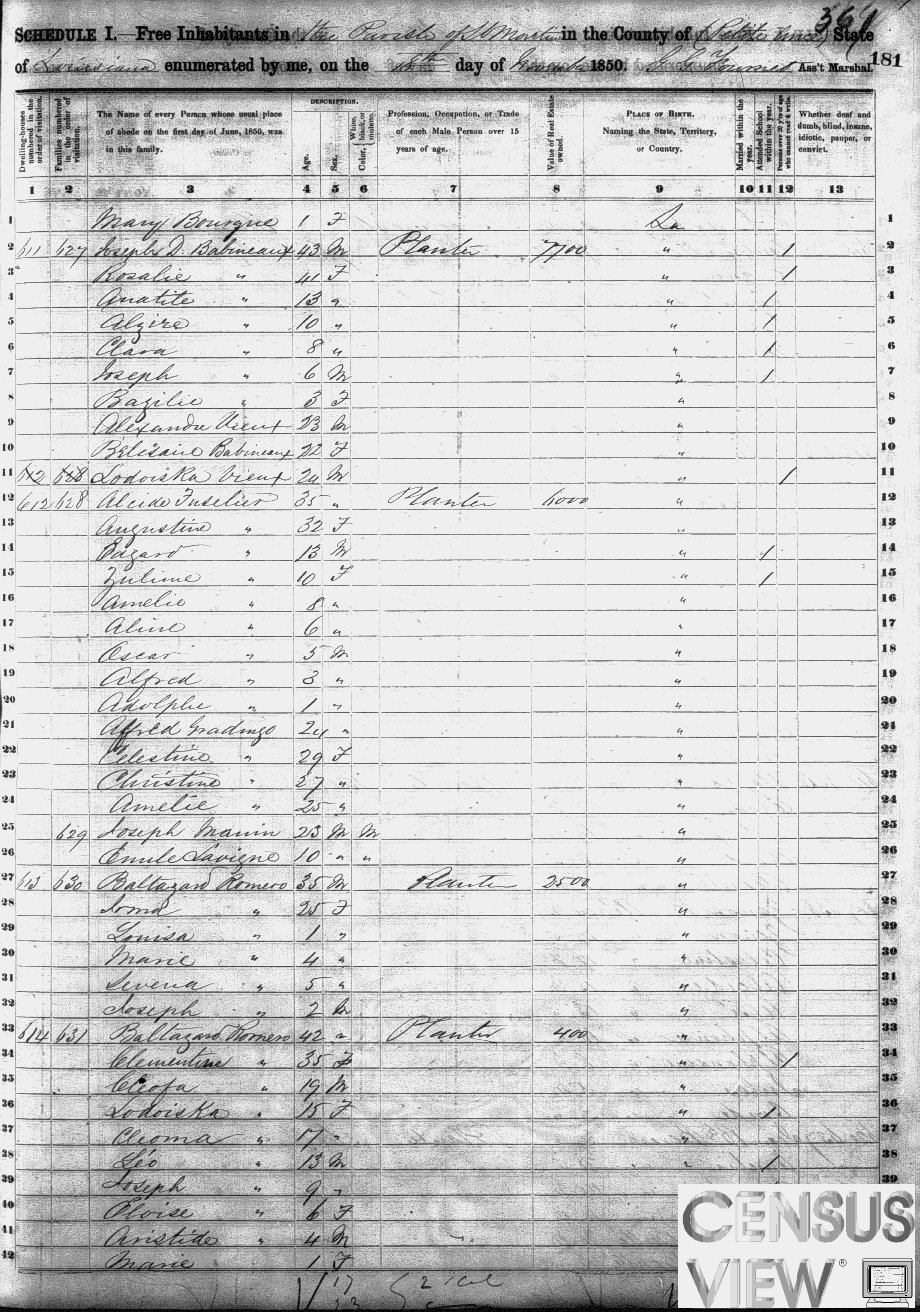 361
SCHEDULE I.—Free Inhabitants in the Parish of St Martin in the County of State
of Louisiana enumerated by me, on the 18th day of November 1850. Ass't Marshal. 181
Dwelling-houses numbered in the order of visitation.
Families numbered in the order of visitation.
The Name of every Person whose usual place of abode on the first day of June, 1850, was in this family.
DESCRIPTION.
Age.
Sex.
Color, White, black, or mulatto.
Profession, Occupation, or Trade of each Male Person over 15 years of age.
Value of Real Estate owned.
PLACE OF BIRTH. Naming the State, Territory, or Country.
Married within the year.
Attended School within the year.
Persons over 20 y'rs of age who cannot read & write.
Whether deaf and dumb, blind, insane, idiotic, pauper, or convict.
1 2 3 4 5 6 7 8 9 10 11 12 13
1 Mary Bourque 1 F La 1
2 611 627 Joseph D. Babineaux 43 M Planter 7700 " / 2
3 Rosalie " 41 F " / 3
4 Anatite " 13 " " / 4
5 Alzire " 10 " " / 5
6 Clara " 8 " " / 6
7 Joseph " 6 M " / 7
8 Bazilie " 3 F " 8
9 Alexandre Vieux 23 M " 9
10 Belisaire Babineaux 22 F " 10
11 612 628 Lodoiska Vieux 24 M " / 11
12 612 628 Alcide Fuselier 35 " Planter 6000 " 12
13 Augustine " 32 F " 13
14 Edgard " 13 M " / 14
15 Zulime " 10 F " / 15
16 Amelie " 8 " " 16
17 Aline " 6 " " 17
18 Oscar " 5 M " 18
19 Alfred " 3 " " 19
20 Adolphe " 1 " " 20
21 Alfred Gradingo 24 " " 21
22 Celestine " 29 F " 22
23 Christine " 27 " " 23
24 Amelie " 25 " " 24
25 629 Joseph 23 M M " 25
26 Emile Lavigne 10 " " " 26
27 613 630 Baltazard Romero 35 M Planter 2500 " 27
28 " 25 F " 28
29 Louisa " 1 " " 29
30 Marie " 4 " " 30
31 " 5 " " 31
32 Joseph " 2 M " 32
33 614 631 Baltazard Romero 42 " Planter 400 " 33
34 Clementine " 35 F " / 34
35 Cleofa " 19 M " 35
36 Lodoiska " 15 F " / 36
37 Cleoma " 17 " " 37
38 Léo " 13 M " / 38
39 Joseph " 9 " 39
40 Eloise " 6 F
41 Aristide " 4 M
42 Marie 1 F
CENSUS
VIEW®